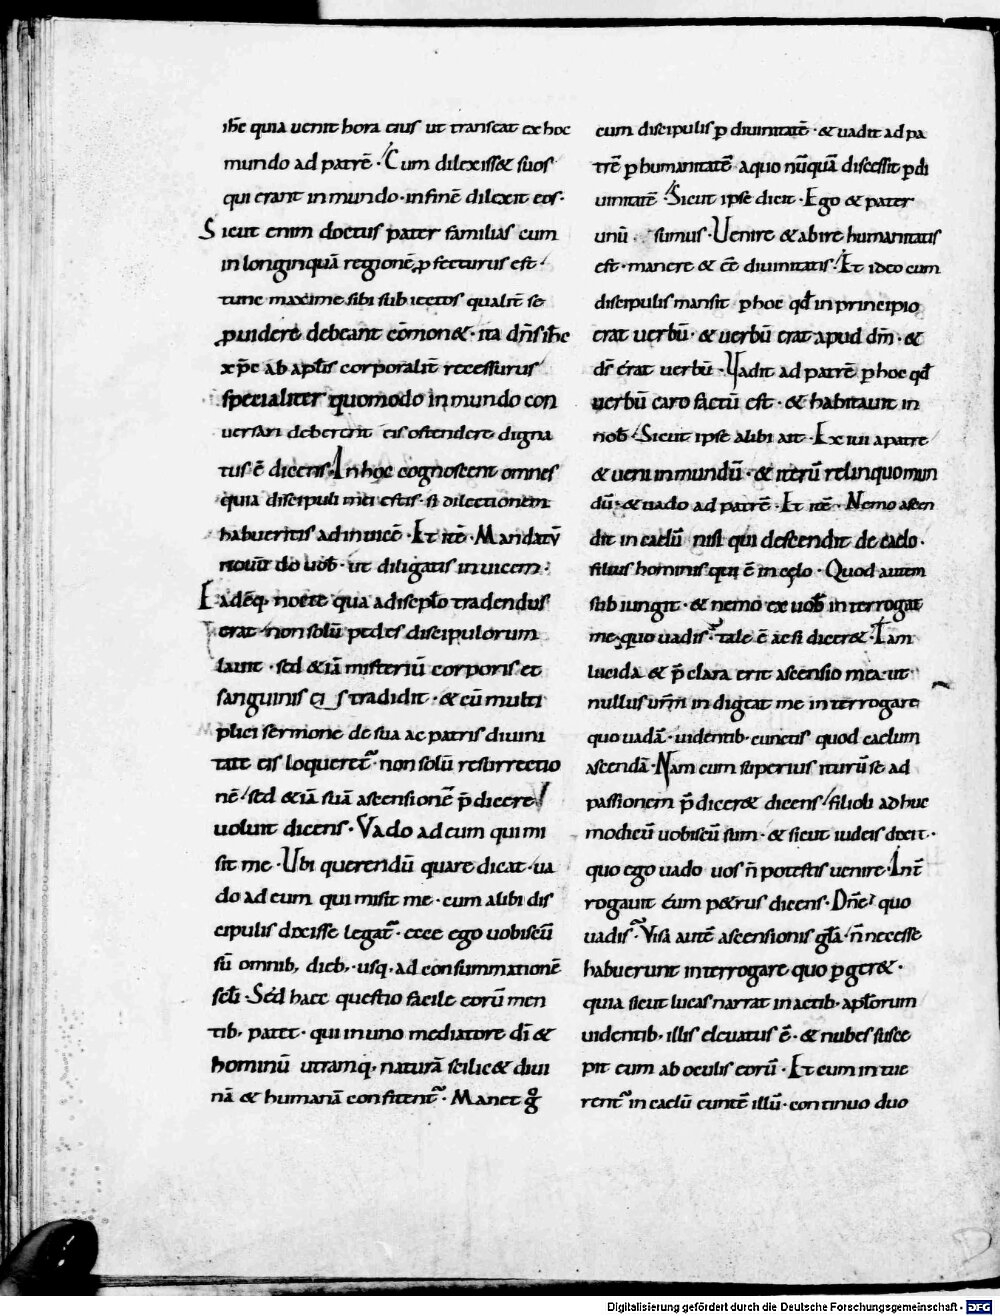 ihc̄ quia uenit hora eius ut transeat ex hoc
mundo ad patrē. Cum dilexiss& suos
qui erant in mundo. in finē dilexit eos.
Sicut enim doctus pater familias cum
in longinquā regionē ꝓfecturus est.
tunc maxime sibi subiectos qualit̄ se
ꝓuidere debeant cōmon&. ita dn̄s ihc̄
xp̄c ab aplīs corporalit̄ recessurus
specialiter quomodo in mundo con
uersari deberent eis ostendere digna
tus ē dicens. In hoc cognoscent omnes
quia discipuli mei estis. si dilectionem
habueritis ad inuicē. Et itē. Mandatū
nouū do uob̄. ut diligatis inuicem.
Eadēq; nocte qua a discplō tradendus
erat. non solū pedes discipulorum
lauit. sed &iā misteriū corporis et
sanguinis eis tradidit. & cū multi
plici sermone de sua ac patris diuini
tate eis loqueret᷑. non solū resurrectio
nē. sed &iā suā ascensionē p̄dicere
uoluit dicens. Vado ad eum qui mi
sit me. Ubi querendū quare dicat. ua
do ad eum qui misit me. cum alibi dis
cipulis dixisse legat᷑. ecce ego uobiscū
sū omnib; dieb; usq; ad consummationē
sclī. Sed haec questio facile eorū men
tib; patet. qui in uno mediatore dī &
hominū utramq; naturā scilic& diui
nā & humanā confitent᷑. Manet gͦ
cum discipulis ꝑ diuinitatē. & uadit ad pa
trē ꝑ humanitatē a quo nūquā discessit ꝑ di
uinitatē. Sicut ipse dicit. Ego & pater
unū sumus. Uenire & abire humanitatis
est. manere & eē diuinitatis. Et ideo cum
discipulis mansit ꝑ hoc qd̄ in principio
erat uerbū. & uerbū erat apud dm̄. &
ds̄ erat uerbū. Vadit ad patrē ꝑ hoc qd̄
uerbū caro factū est. & habitauit in
nob̄. Sicut ipse alibi ait. Exiui a patre
& ueni in mundū. & iterū relinquo mun
dū. & uado ad patrē. Et itē. Nemo ascen
dit in caelū nisi qui descendit de caelo.
filius hominis qui ē in cęlo. Quod autem
subiungit. & nemo ex uob̄ interrogat
me. quo uadis. tale ē ac si dicer&. Tam
lucida & p̄clara erit ascensio mea. ut
nullus ur̄m indigeat me interrogare
quo uadā. uidentib; cunctis quod caelum
ascendā. Nam cum superius iturū se ad
passionem p̄dicer& dicens. filioli adhuc
modicū uobiscū sum. & sicut iudeis dixit.
quo ego uado uos n̄ potestis uenire. Int̄
rogauit eum p&rus dicens. Dn̄e quo
uadis. Visa autē ascensionis glā. n̄ necesse
habuerunt interrogare quo ꝑger&.
quia sicut lucas narrat in actib; aplōrum
uidentib; illis eleuatus ē. & nubes susce
pit eum ab oculis eorū. Et cum intue
rent᷑ in caelū euntē illū. continuo duo
Digitalisierung gefördert durch die Deutsche Forschungsgemeinschaft - DFG